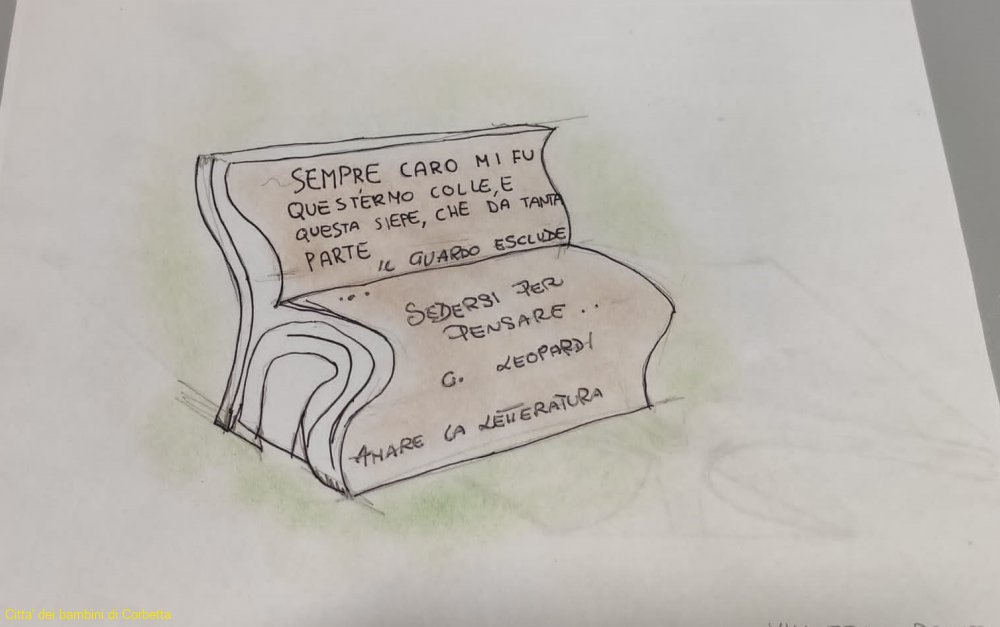 SEMPRE CARO MI FU
QUEST'ERMO COLLE, E
QUESTA SIEPE, CHE DA TANTA
PARTE IL GUARDO ESCLUDE
...
SEDERSI PER
PENSARE ..
G. LEOPARDI
AMARE LA LETTERATURA
Citta' dei bambini di Corbetta